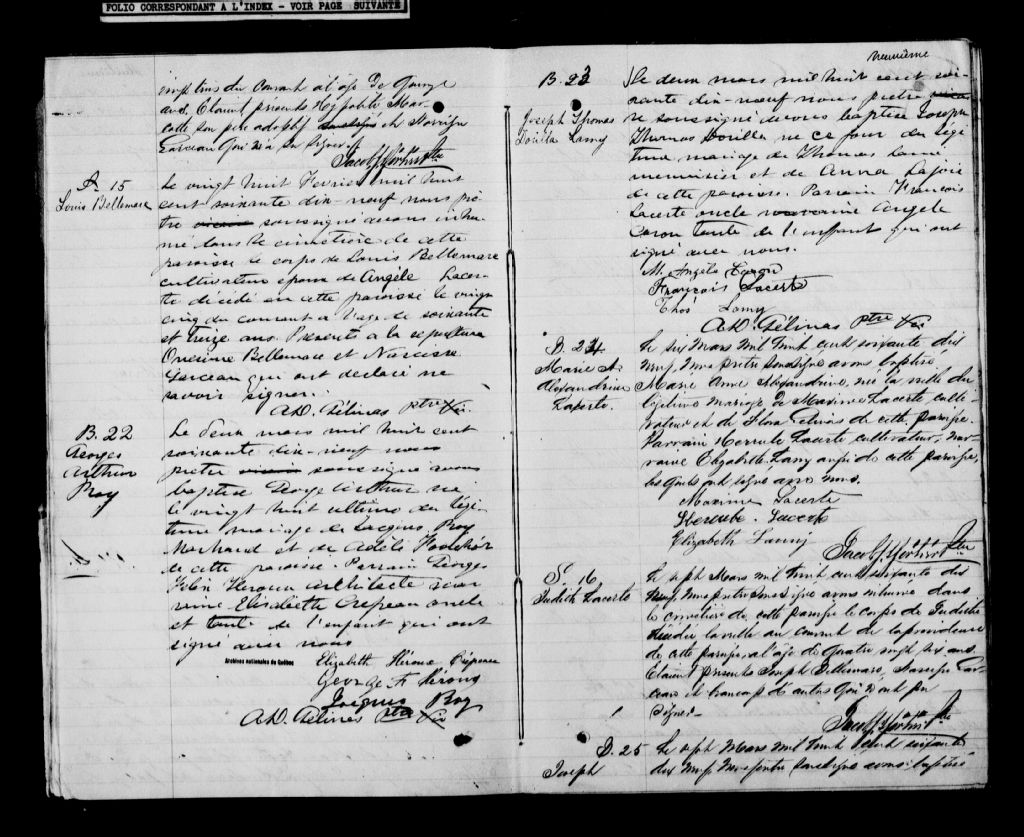 FOLIO CORRESPONDANT A L'INDEX - VOIR PAGE SUIVANTE
vingt cinq du courant a l'age de
ans. Etaient présents Hypolite Mar-
cotte son père adoptif et
Garceau qui n'a su signer
S. 15
Louis Bellemare
Le vingt huit Fevrier mil huit
cent soixante dix-neuf nous prê
tre vicaire soussigné avons inhu
mé dans le cimetière de cette
paroisse le corps de Louis Bellemare
cultivateur epoux de Angèle Lacer
te décédé en cette paroisse le vingt
cinq du courant a l'age de soixante
et treize ans. Presents a la sepulture
Onesime Bellemare et Narcisse
Garceau qui ont declaré ne
savoir signer.
A.D. Gélinas ptre Vic
B. 22
Georges
Arthur
Roy
Le deux mars mil huit cent
soixante dix-neuf nous
pretre vicaire soussigné avons
baptisé George Arthur né
le vingt huit ultimo du légi-
time mariage de Jacques Roy
Marchand et de Adèle
de cette paroisse. Parrain Georges
Felix Heroux Architecte mar
raine Elizabeth Crepeau oncle
et tante de l'enfant qui ont
signé avec nous
Archives nationales du Québec
Elizabeth Héroux Crépeau
George F Héroux
Jacques Roy
A.D. Gélinas Ptre Vic
neuvième
B. 23
Joseph Thomas
Dorilla Lamy
Le deux mars mil huit cent soi-
xante dix-neuf nous pretre vicai
re soussigné avons baptisé Joseph
Thomas Dorilla né ce jour du légi
time mariage de Thomas Lamie
menuisier et de Anna Lajoie
de cette paroisse. Parrain François
Lacerte oncle marraine Angele
Caron tante de l'enfant qui ont
signé avec nous.
M. Angèle Caron
François Lacerte
Thos Lamy
A.D. Gélinas ptre Vic
B. 24
Marie A.
Alexandrine
Lacerte.
Le six Mars mil huit cent soixante dix
neuf, nous prêtre soussigné avons baptisé
Marie Anne Alexandrine, née la veille du
légitime mariage de Maxime Lacerte culti-
vateur et de Flora de cette paroisse.
Parrain Hercule Lacerte cultivateur, mar
raine Elizabeth Lamy aussi de cette paroisse,
lesquels ont signé avec nous.
Maxime Lacerte
Hercule Lacerte
Elizabeth Lamy
S. 16.
Judith Lacerte
Le sept Mars mil huit cent soixante dix
neuf, nous prêtre soussigné avons inhumé dans
le cimetière de cette paroisse le corps de Judith
décédée la veille au couvent de la providence
de cette paroisse, a l'age de quatre vingt six ans.
Etaient présents Joseph Bellemare, Gar
ceau et François de autres qui n'ont pu
signer.
B. 25
Joseph
Le sept Mars mil huit cent soixante
dix neuf nous prêtre soussigné avons baptisé